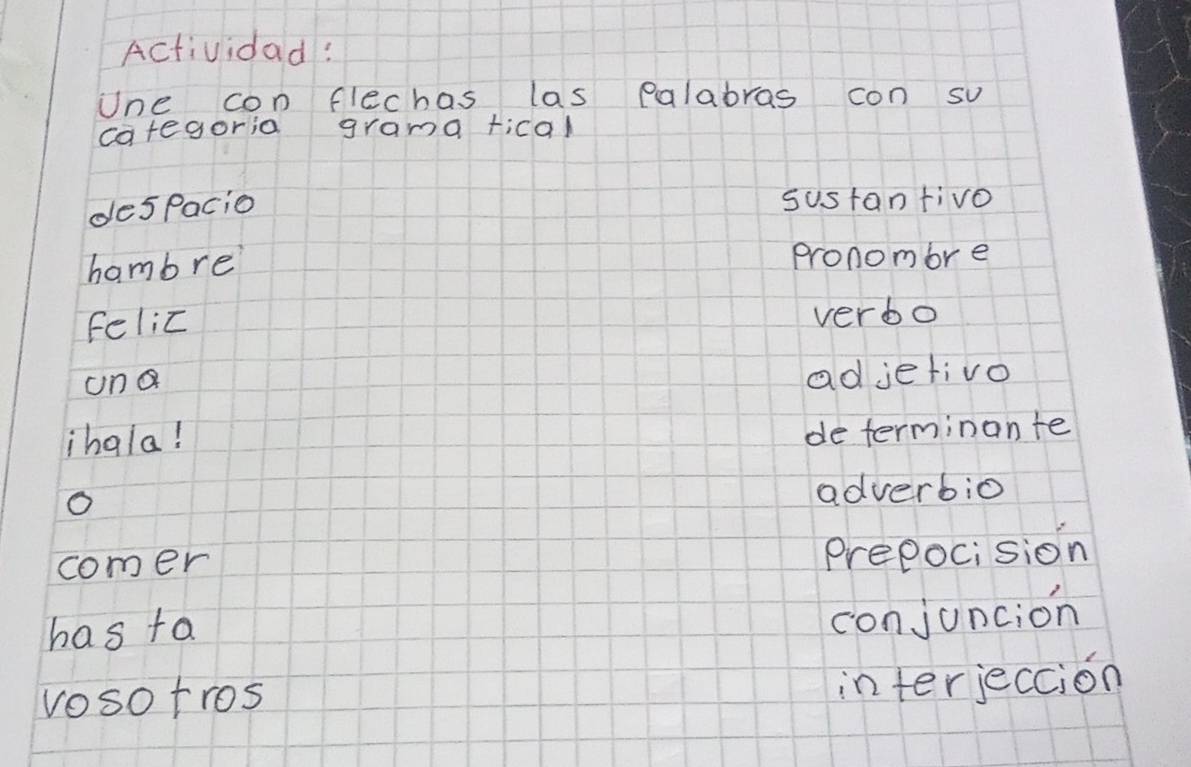 Actividad:
Une con flechas las Palabras con su
categoria gramatical
despacio sustantivo
hambre pronombre
feliz verbo
una adjetivo
¡hala! determinante
o adverbio
comer Prepocisión
hasta conjunción
vosotros interjección